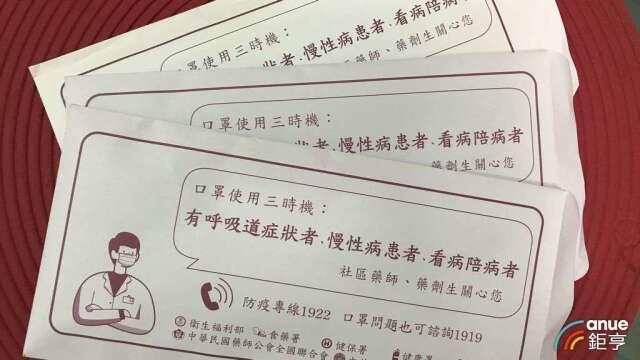 口罩使用三時機：
狀者、慢性病患者、看病陪病
藥劑生關心您
口罩使用三時機：
慢性病患者、看病陪病者
藥劑生關心您
口罩使用三時機：
有呼吸道症狀者、慢性病患者、看病陪病者
社區藥師、藥劑生關心您
防疫專線1922 口罩問題也可諮詢1919
衛生福利部 食藥署 健保署 健康署
中華民國藥師公會全國聯合會
anue
鉅亨